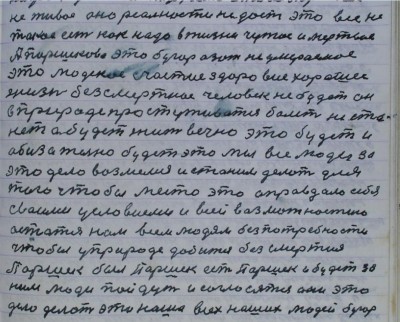 не живое оно реальности не дост это все не
такое ест как надо в жизни чужое и мертвое
А Паршеково это бугор а зот не умераемое
это людское счастие здоровие хорошее
жизн безсмертное человек не будет он
в природе простуживатся болит не ста-
нет а будет жит вечно это будет и
обизателно будет это мы все люди за
это дело возмемся и станим делат для
того чтобы место это оправдало себя
своими условиеми и всей возможностию
остатся нам всем людям без потребности
чтобы у природе добится безсмертия
Паршек был Паршек ест Паршек и будет за
ним люди пойдут и согласятся они это
дело делат это наша всех наших людей бугор